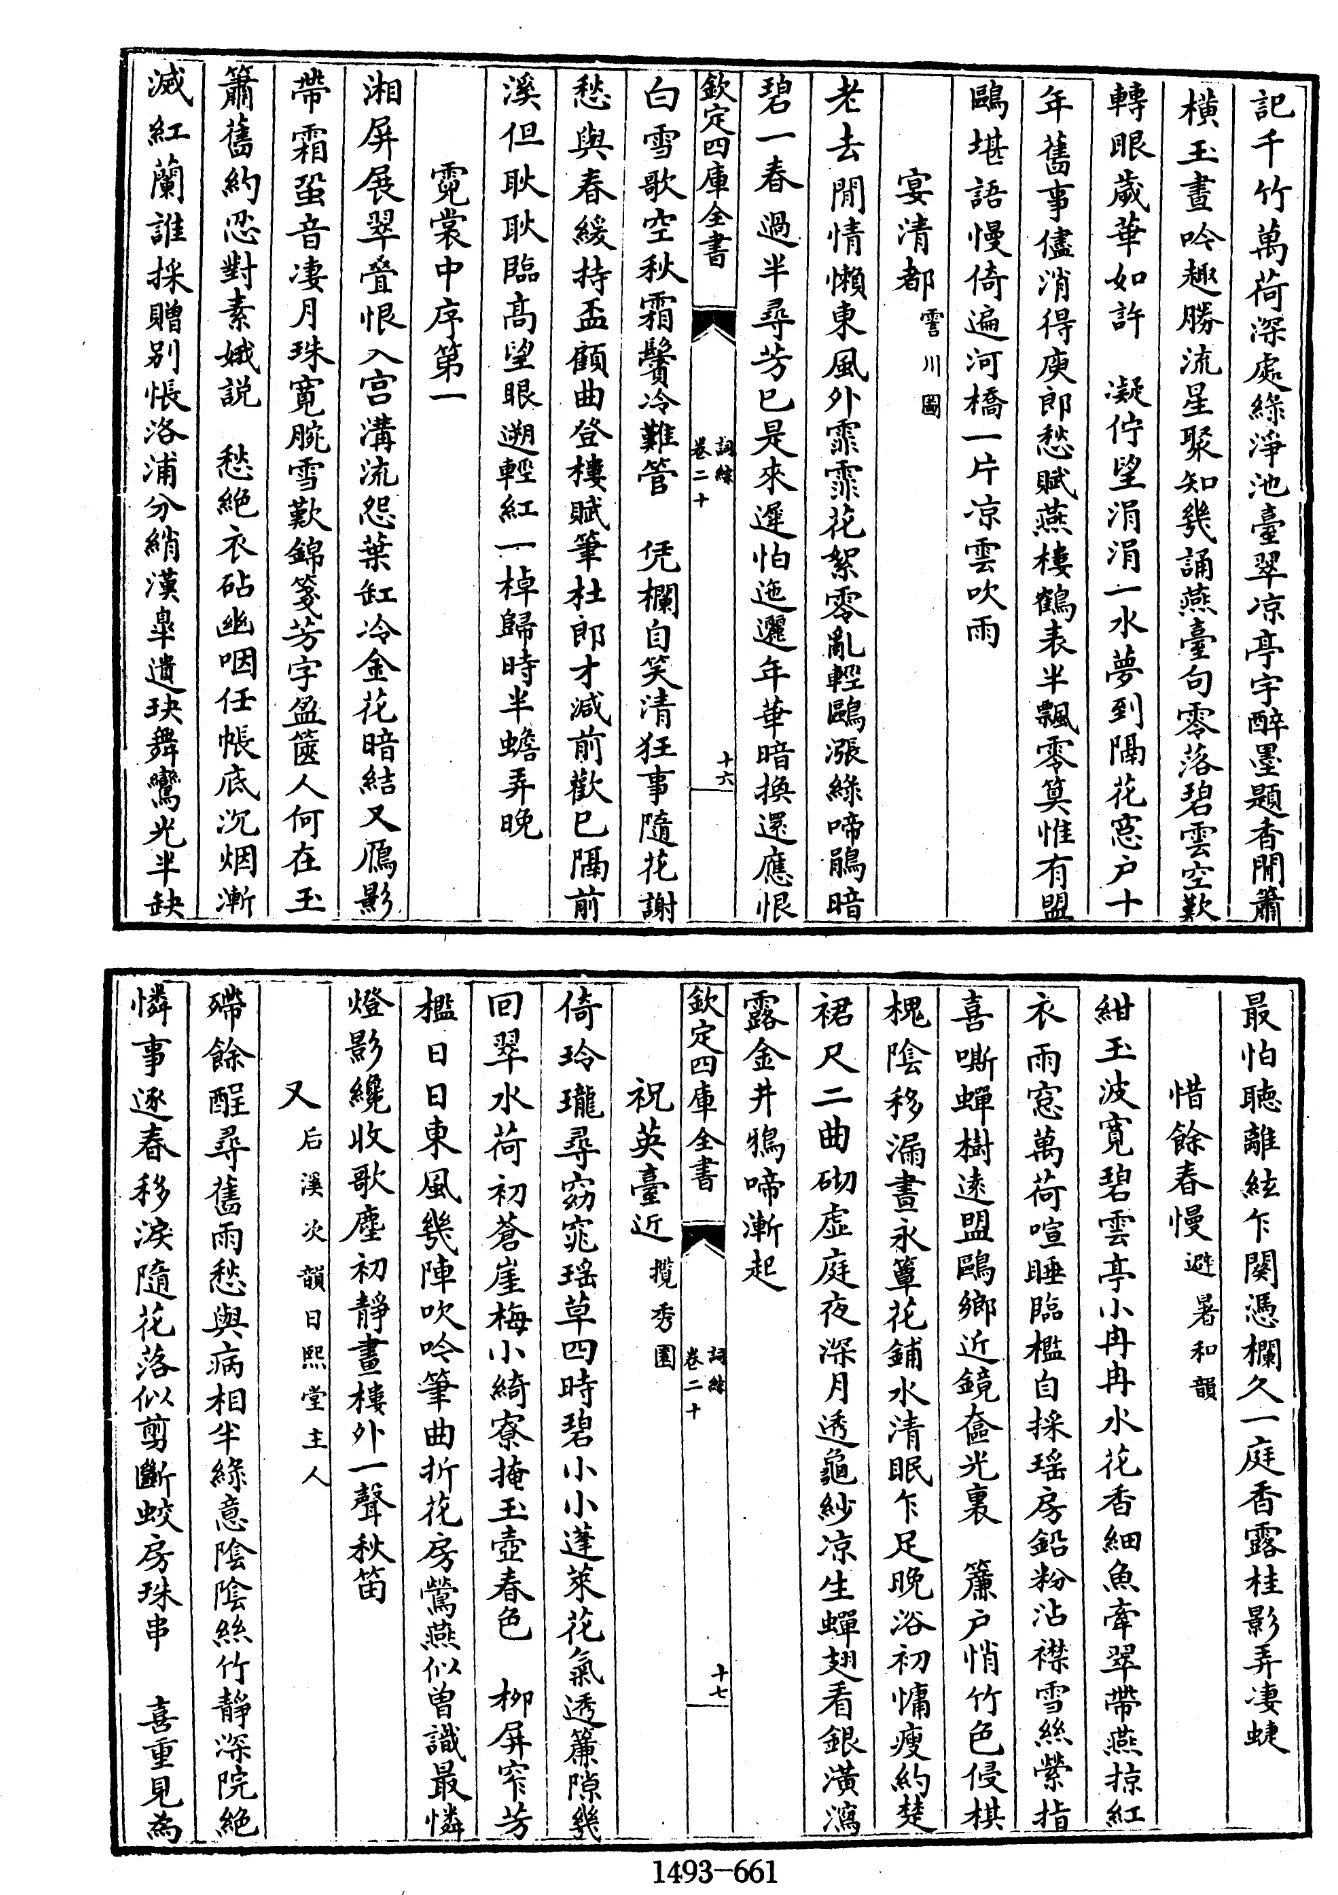 記千竹萬荷深處綠淨池臺翠凉亭宇醉墨題香閒簫
橫玉晝吟趣勝流星聚知幾誦燕臺句零落碧雲空歎
轉眼歲華如許　凝佇望涓涓一水夢到隔花窓户十
年舊事儘消得庾郎愁賦燕樓鶴表半飄零算惟有盟
鷗堪語慢倚遍河橋一片凉雲吹雨
宴清都 霅川圖
老去閒情懶東風外霏霏花絮零亂輕鷗漲綠啼鵑暗
碧一春過半尋芳已是來遲怕迤邐年華暗換還應恨
欽定四庫全書
詞綜
卷二十
十六
白雪歌空秋霜鬢冷難管　凭欄自笑清狂事隨花謝
愁與春緩持盃顧曲登樓賦筆杜郎才減前歡已隔前
溪但耿耿臨高望眼遡輕紅一棹歸時半蟾弄晚
霓裳中序第一
湘屏展翠疊恨入宫溝流怨葉缸冷金花暗結又鴈影
帶霜蛩音凄月珠寛腕雪歎錦箋芳字盈篋人何在玉
簫舊約忍對素娥説　愁絶衣砧幽咽任帳底沉烟漸
滅紅蘭誰採贈别悵洛浦分綃漢臯遺玦舞鸞光半缺
最怕聽離絃乍闋憑欄久一庭香露桂影弄凄蜨
惜餘春慢 避暑和韻
紺玉波寛碧雲亭小冉冉水花香細魚牽翠帶燕掠紅
衣雨窓萬荷喧睡臨檻自採瑶房鉛粉沾襟雪絲縈指
喜嘶蟬樹逺盟鷗鄉近鏡奩光裏　簾户悄竹色侵棋
槐陰移漏晝永簟花鋪水清眠乍足晚浴初慵瘦約楚
裙尺二曲砌虚庭夜深月透龜紗凉生蟬翅看銀潢瀉
露金井鴉啼漸起
欽定四庫全書
詞綜
卷二十
十七
祝英臺近 攬秀園
倚玲瓏尋窈窕瑶草四時碧小小蓬萊花氣透簾隙幾
回翠水荷初蒼崖梅小綺寮掩玉壺春色　柳屏窄芳
檻日日東風幾陣吹吟筆曲折花房鶯燕似曾識最憐
燈影纔收歌塵初靜畫樓外一聲秋笛
又 后溪次韻日熙堂主人
殢餘酲尋舊雨愁與病相半綠意陰陰絲竹靜深院絶
憐事逐春移淚隨花落似剪斷蛟房珠串　喜重見為
1493-661